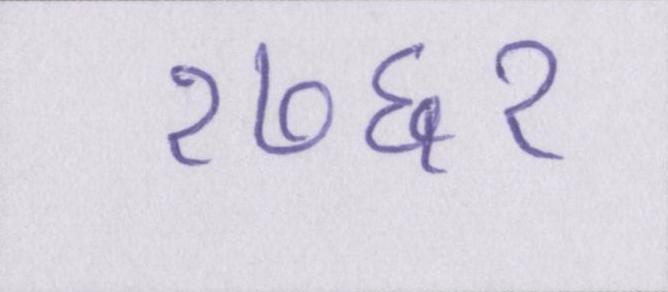 २७६२